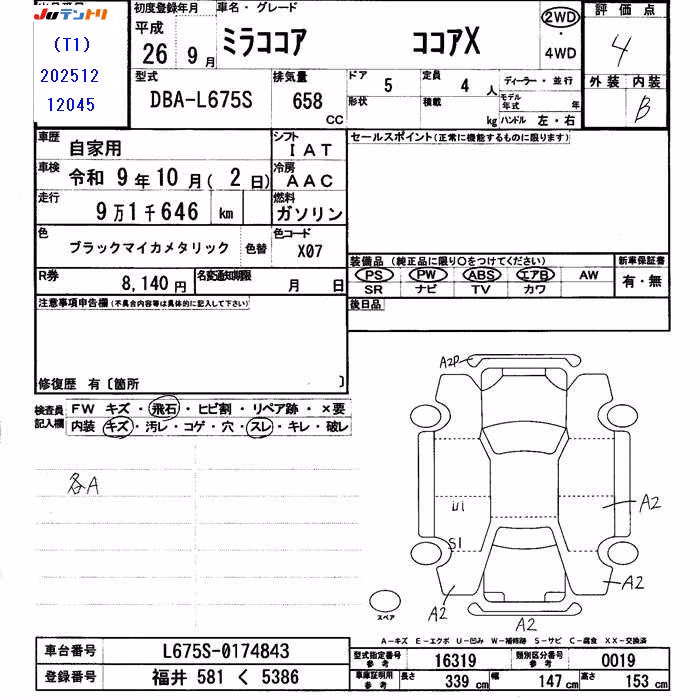 JUテントリ
(T1)
202512
12045
初度登録年月
平成
26 9月
車名・グレード
ミラココア ココアX
2WD
・
4WD
評価点
4
外装 内装
B
型式
DBA-L675S
排気量
658
CC
ドア 5
定員 4 人
ディーラー・並行
形状
積載 kg
モデル年式 年
ハンドル 左・右
車歴 自家用
シフト IAT
セールスポイント(正常に機能するものに限ります)
車検 令和 9年10月(2日)
冷房 AAC
走行 9万1千646 km
燃料 ガソリン
色 ブラックマイカメタリック 色替
色コード X07
装備品(純正品に限り○をつけてください)
新車保証書
PS PW ABS エアB AW
有・無
SR ナビ TV カワ
R券 8,140円
名変通知期限 月 日
後日品
注意事項申告欄(不具合内容等は具体的に記入して下さい)
修復歴 有〔箇所 〕
検査員記入欄
FW キズ・飛石・ヒビ割・リペア跡・×要
内装 キズ・汚レ・コゲ・穴・スレ・キレ・破レ
各A
A2P
U1
S1
A2
A2
A2
A2
スペア
A-キズ E-エクボ U-凹み W-補修跡 S-サビ C-腐食 XX-交換済
車台番号 L675S-0174843
登録番号 福井 581 く 5386
型式指定番号 参考 16319
類別区分番号 参考 0019
車庫証明用 参考 長さ 339 cm 幅 147 cm 高さ 153 cm